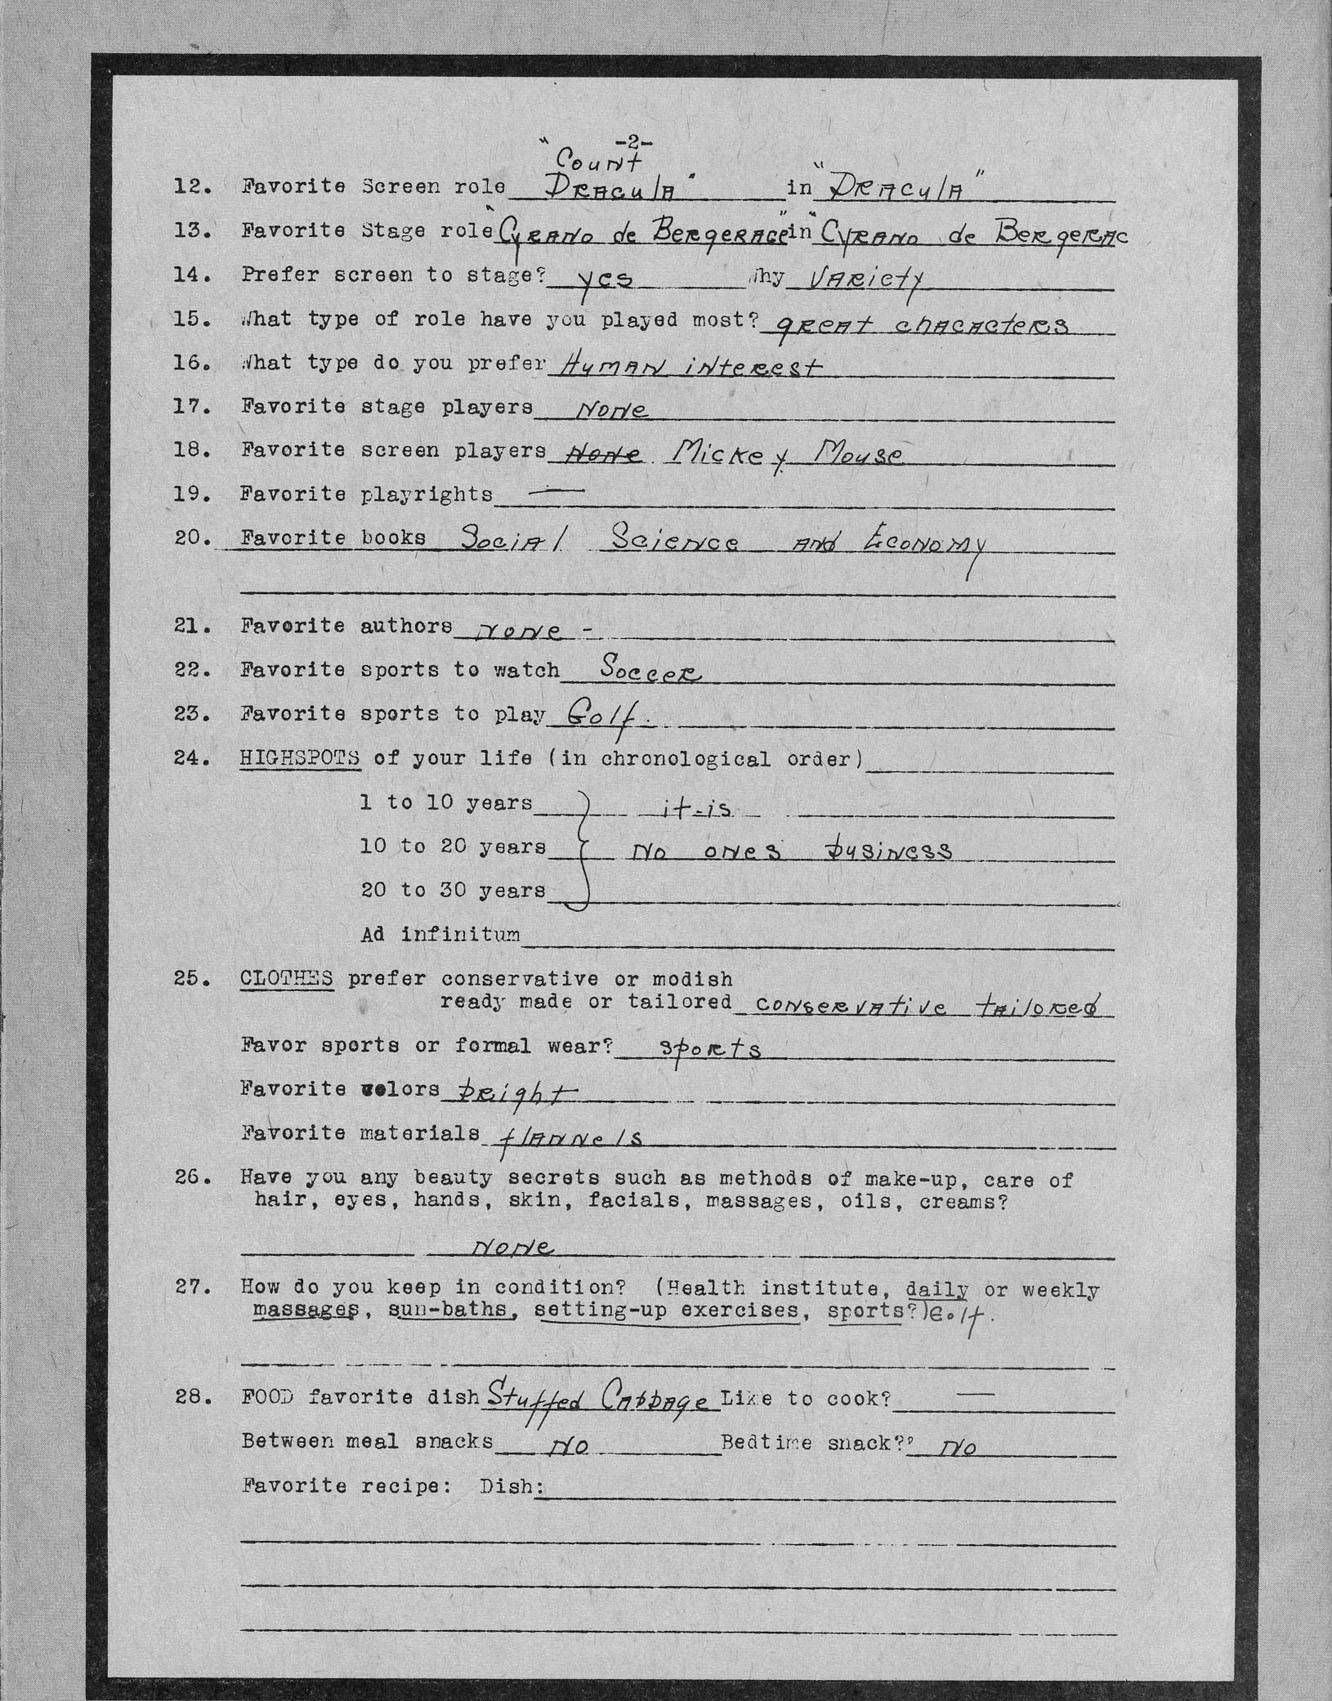 -2-
12. Favorite Screen role "Count Dracula" in "Dracula"
13. Favorite Stage role "Cyrano de Bergerace" in "Cyrano de Bergerac
14. Prefer screen to stage? yes Why Variety
15. What type of role have you played most? great chacacters
16. What type do you prefer Human interest
17. Favorite stage players None
18. Favorite screen players None Mickey Mouse
19. Favorite playrights —
20. Favorite books Social Science and Economy
21. Favorite authors none -
22. Favorite sports to watch Soccer
23. Favorite sports to play Golf.
24. HIGHSPOTS of your life (in chronological order)
1 to 10 years it-is
10 to 20 years No ones business
20 to 30 years
Ad infinitum
25. CLOTHES prefer conservative or modish
ready made or tailored conservative tailored
Favor sports or formal wear? sports
Favorite colors bright
Favorite materials flannels
26. Have you any beauty secrets such as methods of make-up, care of
hair, eyes, hands, skin, facials, massages, oils, creams?
None
27. How do you keep in condition? (Health institute, daily or weekly
massages, sun-baths, setting-up exercises, sports?) Golf.
28. FOOD favorite dish Stuffed Cabbage Like to cook? —
Between meal snacks No Bedtime snack?? No
Favorite recipe: Dish: